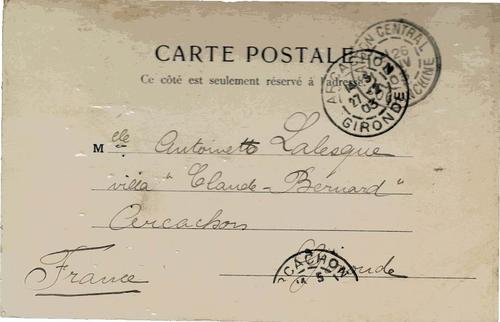 CARTE POSTALE
Ce côté est seulement réservé à l'adresse
CENTRAL
26
ARCACHON
27
03
GIRONDE
Mlle Antoinette Lalesque
villa "Claude-Bernard"
Arcachon
Gironde
France
CACHON
5